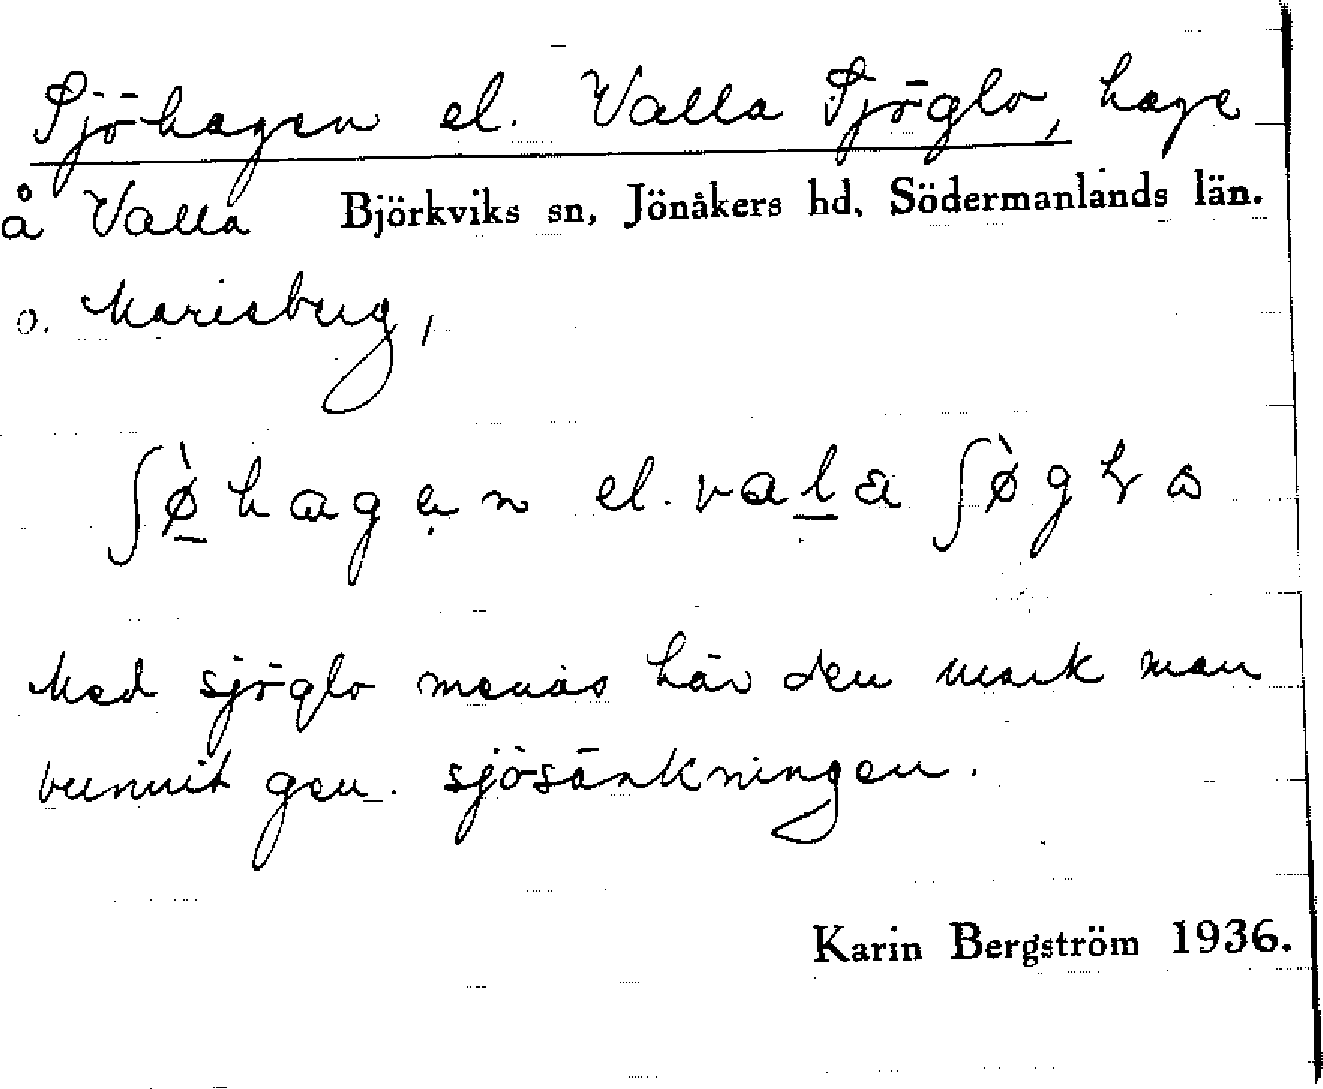 Sjöhagen el. Valla Sjöglo, hage
å Valla Björkviks sn, Jönåkers hd, Södermanlands län.
o. Marieberg,
ʃø̀hagạn el. vala ʃø̀gɽɷ
Med sjöglo menas här den mark man
vunnit gen. sjösänkningen.
Karin Bergström 1936.